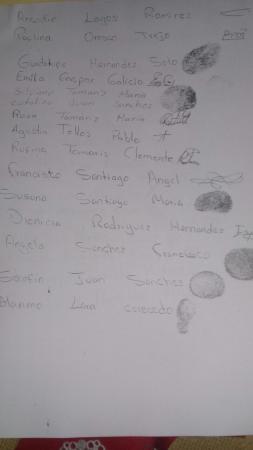 Lagos Ramirez
Paulina Orosco Trejo
Guadalupe Hernandes Soto
Emilia Gaspar Galicia
Silvano Tomariz Maria
Catalina Juan Sanches
Rosa Tomariz Maria
Agustin Tellos Pablo
Rufina Tamaris Clemente
Francisco Santiago Angel
Susana Santiago Maria
Dionicia Rodriguez Hernandez
Angela Sanchez Francisco
Serafin Juan Sanches
Lina